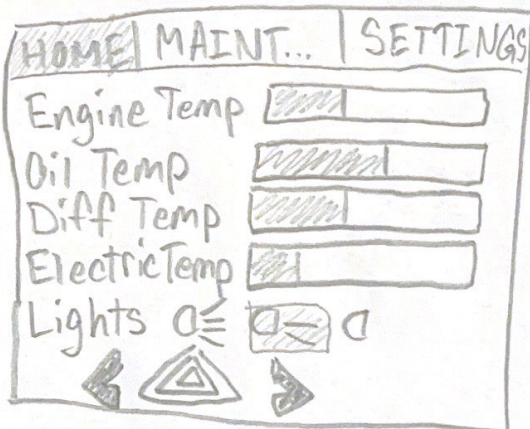 HOME MAINT... SETTINGS
Engine Temp
Oil Temp
Diff Temp
Electric Temp
Lights